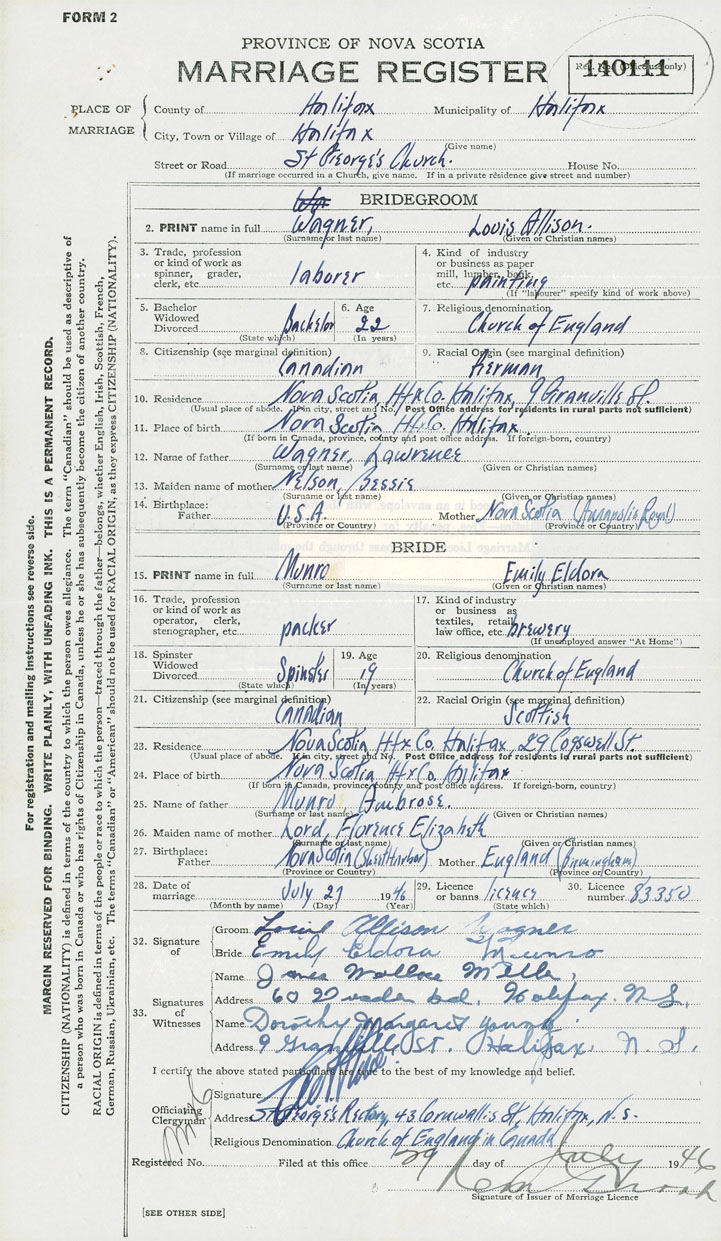 FORM 2
PROVINCE OF NOVA SCOTIA
MARRIAGE REGISTER
Reg. No. (Office use only)
140111
PLACE OF MARRIAGE
County of Halifax Municipality of Halifax
City, Town or Village of Halifax
(Give name)
Street or Road St George's Church. House No.
(If marriage occurred in a Church, give name. If in a private residence give street and number)
BRIDEGROOM
2. PRINT name in full Wagner, Louis Allison.
(Surname or last name) (Given or Christian names)
3. Trade, profession or kind of work as spinner, grader, clerk, etc. laborer
4. Kind of industry or business as paper mill, lumber, bank, etc. painting
(If "labourer" specify kind of work above)
5. Bachelor Widowed Divorced Bachelor
(State which)
6. Age 22
(In years)
7. Religious denomination
Church of England
8. Citizenship (see marginal definition)
Canadian
9. Racial Origin (see marginal definition)
German
10. Residence Nova Scotia Hfx Co. Halifax, 9 Granville St.
(Usual place of abode. If in city, street and No. Post Office address for residents in rural parts not sufficient)
11. Place of birth Nova Scotia Hfx Co. Halifax.
(If born in Canada, province, county and post office address. If foreign-born, country)
12. Name of father Wagner, Lawrence
(Surname or last name) (Given or Christian names)
13. Maiden name of mother Nelson, Bessie
(Surname or last name) (Given or Christian names)
14. Birthplace: Father U.S.A. Mother Nova Scotia (Annapolis Royal)
(Province or Country) (Province or Country)
BRIDE
15. PRINT name in full Munro Emily Eldora
(Surname or last name) (Given or Christian names)
16. Trade, profession or kind of work as operator, clerk, stenographer, etc. packer
17. Kind of industry or business as textiles, retail, law office, etc. brewery
(If unemployed answer "At Home")
18. Spinster Widowed Divorced Spinster
(State which)
19. Age 19
(In years)
20. Religious denomination
Church of England
21. Citizenship (see marginal definition)
Canadian
22. Racial Origin (see marginal definition)
Scottish
23. Residence Nova Scotia Hfx Co. Halifax, 29 Cogswell St.
(Usual place of abode. If in city, street and No. Post Office address for residents in rural parts not sufficient)
24. Place of birth Nova Scotia Hfx Co. Halifax
(If born in Canada, province, county and post office address. If foreign-born, country)
25. Name of father Munro, Ambrose.
(Surname or last name) (Given or Christian names)
26. Maiden name of mother Lord, Florence Elizabeth
(Surname or last name) (Given or Christian names)
27. Birthplace: Father Nova Scotia (Sheet Harbor) Mother England (Birmingham)
(Province or Country) (Province or Country)
28. Date of marriage July 27 1946
(Month by name) (Day) (Year)
29. Licence or banns licence
(State which)
30. Licence number 83350
32. Signature of
Groom Louis Allison Wagner
Bride Emily Eldora Munro
33. Signatures of Witnesses
Name James Wallace
Address 60 Rd, Halifax. N.S.
Name Dorothy Margaret Young.
Address 9 Granville St. Halifax, N.S.
I certify the above stated particulars are true to the best of my knowledge and belief.
Officiating Clergyman
Signature
Address St George's Rectory, 43 Cornwallis St, Halifax, N.S.
Religious Denomination Church of England in Canada
Registered No. Filed at this office 29 day of July 1946
Signature of Issuer of Marriage Licence
[SEE OTHER SIDE]
For registration and mailing instructions see reverse side.
MARGIN RESERVED FOR BINDING. WRITE PLAINLY, WITH UNFADING INK. THIS IS A PERMANENT RECORD.
CITIZENSHIP (NATIONALITY) is defined in terms of the country to which the person owes allegiance. The term "Canadian" should be used as descriptive of
a person who was born in Canada or who has rights of Citizenship in Canada, unless he or she has subsequently become the citizen of another country.
RACIAL ORIGIN is defined in terms of the people or race to which the person—traced through the father—belongs, whether English, Irish, Scottish, French,
German, Russian, Ukrainian, etc. The terms "Canadian" or "American" should not be used for RACIAL ORIGIN, as they express CITIZENSHIP (NATIONALITY).